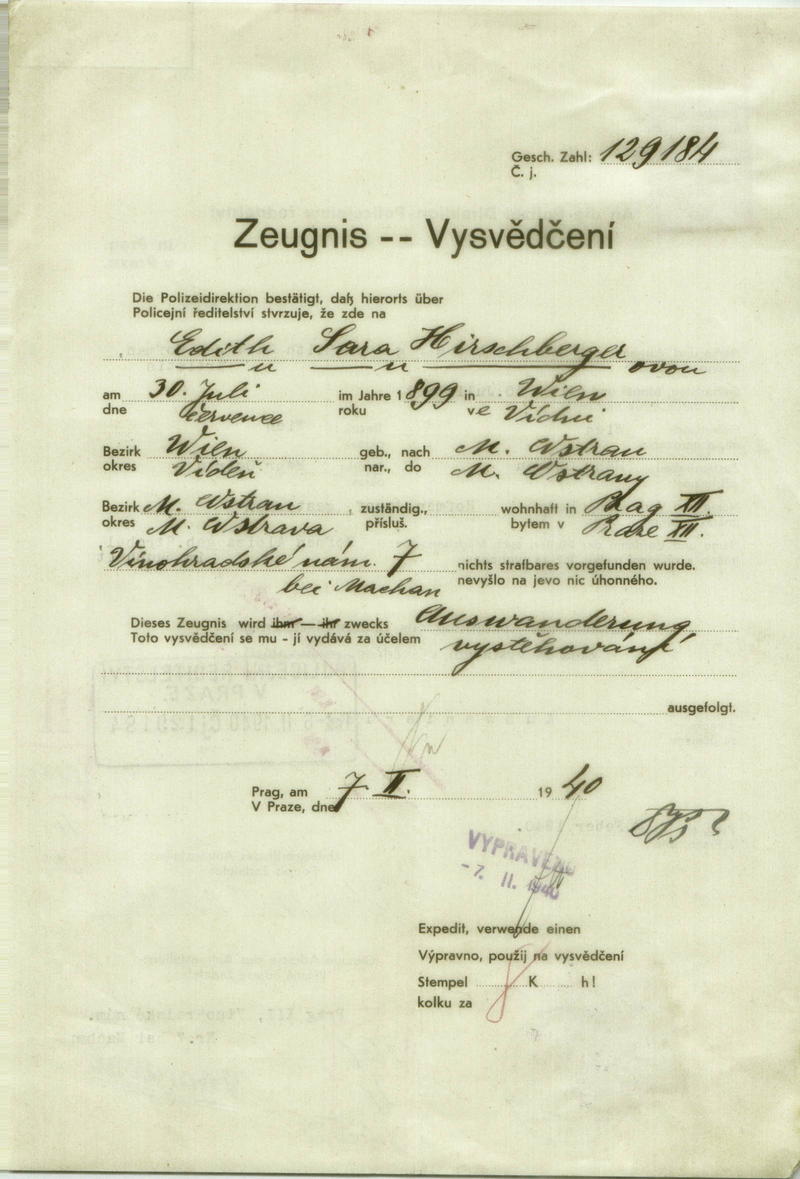 Gesch. Zahl: 129184
Č. j.
Zeugnis -- Vysvědčení
Die Polizeidirektion bestätigt, daß hierorts über
Policejní ředitelství stvrzuje, že zde na
Edith Sara Hirschberger
ovou
am 30. Juli im Jahre 1899 in Wien
dne července roku ve Vídni
Bezirk Wien geb., nach M. Ostrau
okres Vídeň nar., do M. Ostrany
Bezirk M. Ostrau , zuständig., wohnhaft in Prag XII.
okres M. Ostrava přísluš. bytem v Praze XII.
Vinohradské nám. 7 nichts strafbares vorgefunden wurde.
bei Machan nevyšlo na jevo nic úhonného.
Dieses Zeugnis wird ihm — ihr zwecks Auswanderung,
Toto vysvědčení se mu - jí vydává za účelem vystěhování
ausgefolgt.
Prag, am 7 II. 1940
V Praze, dne
VYPRAVENO
-7. II. 1940
Expedit, verwende einen
Výpravno, použij na vysvědčení
Stempel K h!
kolku za